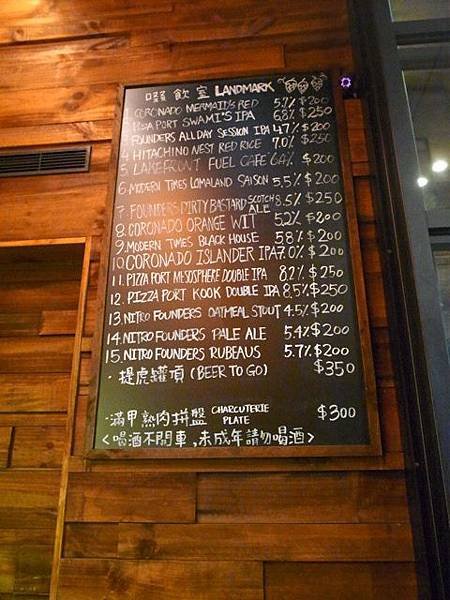 啜飲室 LANDMARK
1. CORONADO MERMAID'S RED 5.7% $200
2. PIZZA PORT SWAMI'S IPA 6.8% $250
3. FOUNDERS ALL DAY SESSION IPA 4.7% $200
4. HITACHINO NEST RED RICE 7.0% $250
5. LAKEFRONT FUEL CAFE 6.4% $200
6. MODERN TIMES LOMALAND SAISON 5.5% $200
7. FOUNDERS DIRTY BASTARD SCOTCH ALE 8.5% $250
8. CORONADO ORANGE WIT 5.2% $200
9. MODERN TIMES BLACK HOUSE 5.8% $200
10. CORONADO ISLANDER IPA 7.0% $200
11. PIZZA PORT MESOSPHERE DOUBLE IPA 8.2% $250
12. PIZZA PORT KOOK DOUBLE IPA 8.5% $250
13. NITRO FOUNDERS OATMEAL STOUT 4.5% $200
14. NITRO FOUNDERS PALE ALE 5.4% $200
15. NITRO FOUNDERS RUBEAUS 5.7% $200
· 提虎罐頂 (BEER TO GO) $350
· 滿甲熟肉拼盤 CHARCUTERIE PLATE $300
<喝酒不開車,未成年請勿喝酒>